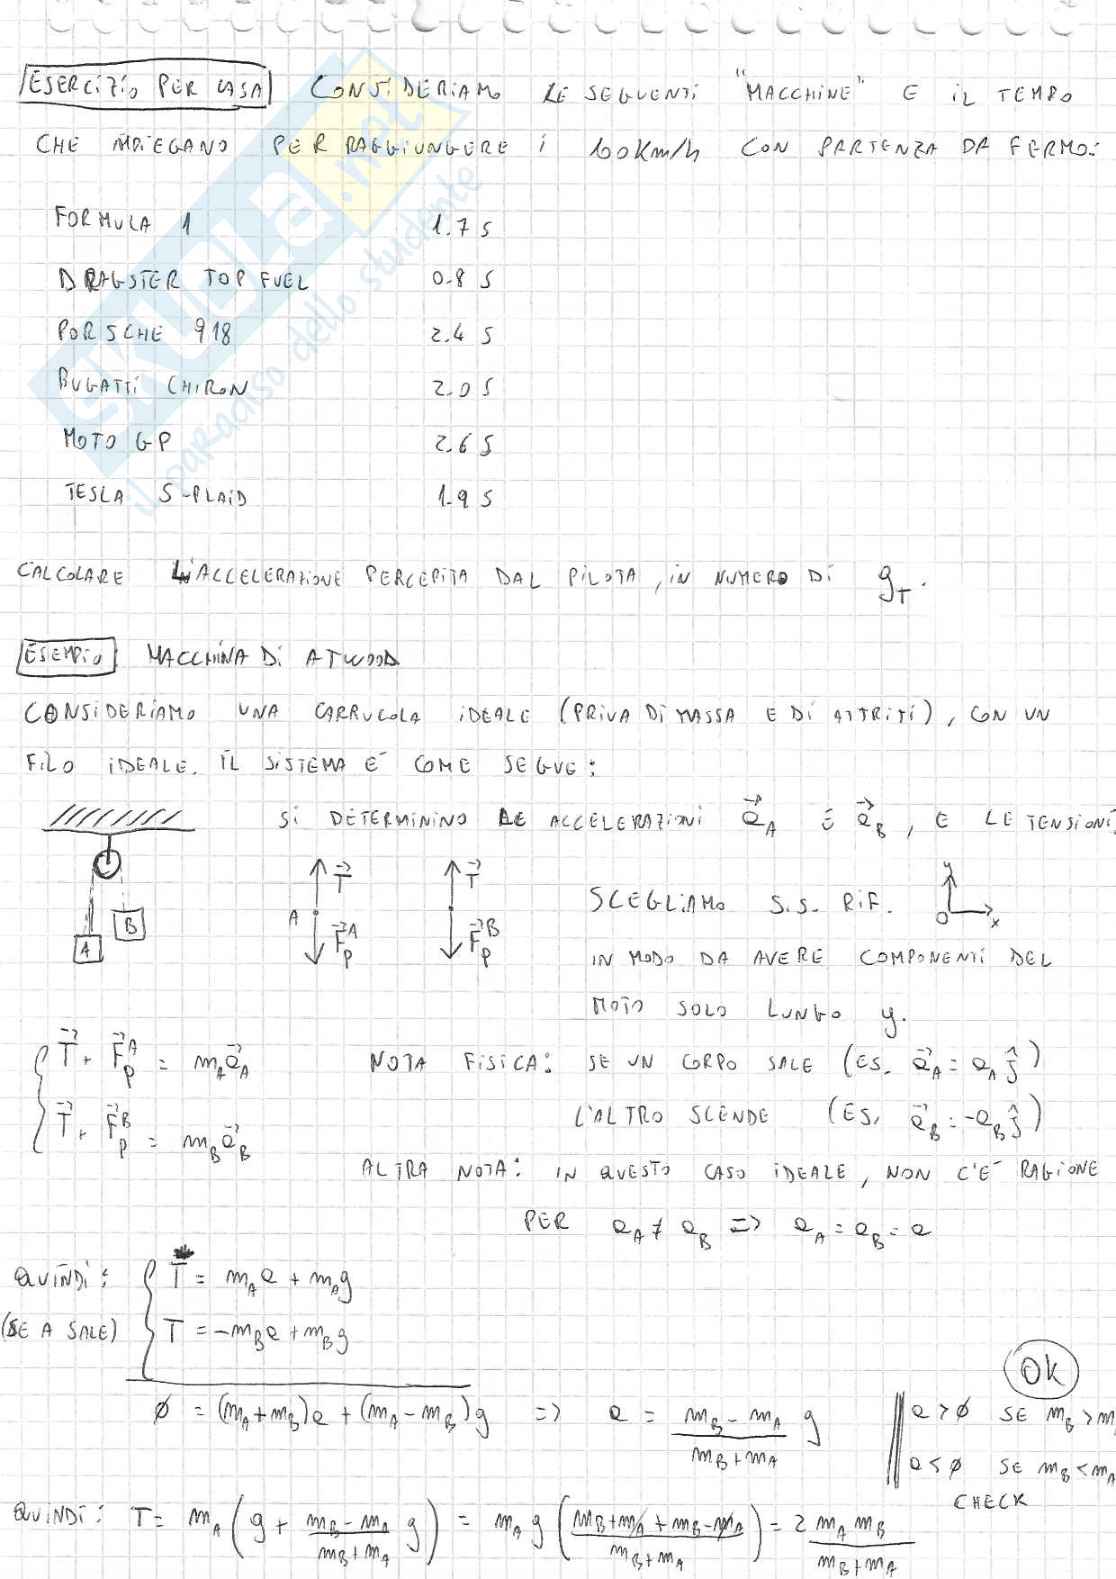 ESERCIZIO PER CASA CONSIDERIAMO LE SEGUENTI "MACCHINE" E IL TEMPO
CHE IMPIEGANO PER RAGGIUNGERE I 100 Km/h CON PARTENZA DA FERMO:
FORMULA 1 1.7 S
DRAGSTER TOP FUEL 0.8 S
PORSCHE 918 2.4 S
BUGATTI CHIRON 2.0 S
MOTO GP 2.6 S
TESLA S-PLAID 1.9 S
SKUOLA.net
il paradiso dello studente
CALCOLARE L'ACCELERAZIONE PERCEPITA DAL PILOTA, IN NUMERO DI g_T.
ESEMPIO MACCHINA DI ATWOOD
CONSIDERIAMO UNA CARRUCOLA IDEALE (PRIVA DI MASSA E DI ATTRITI), CON UN
FILO IDEALE. IL SISTEMA E' COME SEGUE:
SI DETERMININO LE ACCELERAZIONI a⃗_A E a⃗_B, E LE TENSIONI.
A B
T⃗ A F⃗_p^A
T⃗ F⃗_p^B
SCEGLIAMO S.S. RIF. y O x
IN MODO DA AVERE COMPONENTI DEL
MOTO SOLO LUNGO y.
T⃗ + F⃗_p^A = m_A a⃗_A NOTA FISICA: SE UN CORPO SALE (ES. a⃗_A = a_A ĵ)
T⃗ + F⃗_p^B = m_B a⃗_B L'ALTRO SCENDE (ES. a⃗_B = -a_B ĵ)
ALTRA NOTA: IN QUESTO CASO IDEALE, NON C'E' RAGIONE
PER a_A ≠ a_B => a_A = a_B = a
QUINDI: T = m_A a + m_A g
(SE A SALE) T = -m_B a + m_B g
ø = (m_A + m_B) a + (m_A - m_B) g => a = (m_B - m_A)/(m_B + m_A) g
OK
a > ø SE m_B > m
a < ø SE m_B < m_A
CHECK
QUINDI: T = m_A (g + (m_B - m_A)/(m_B + m_A) g) = m_A g ((m_B + m_A + m_B - m_A)/(m_B + m_A)) = 2 (m_A m_B)/(m_B + m_A)